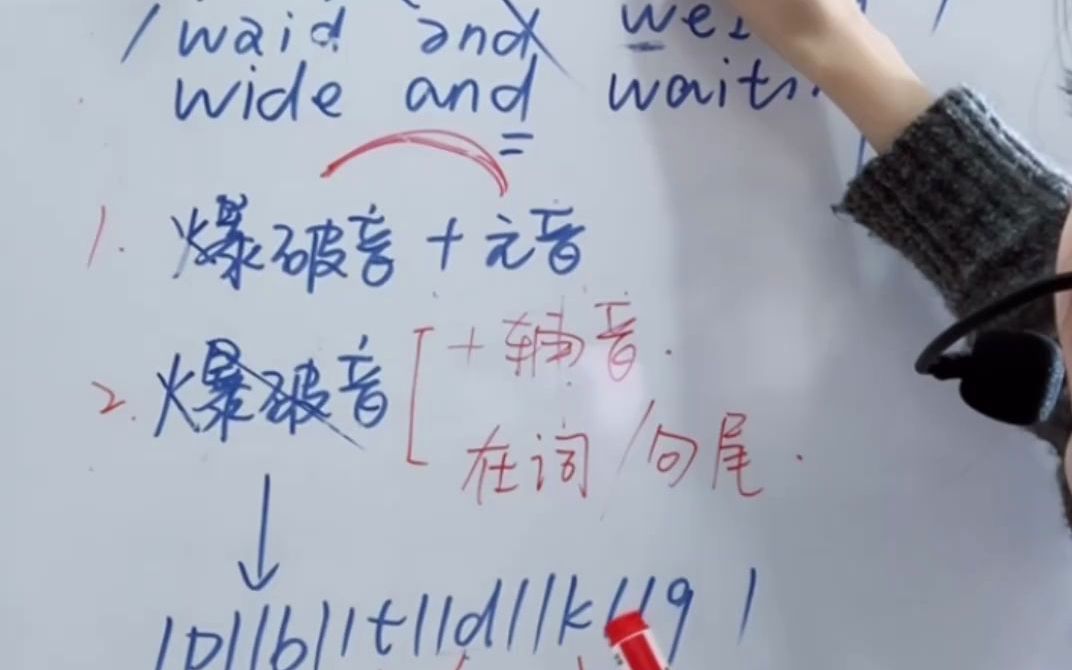 /waid ənd we
wide and waiting
1. 爆破音 + 元音
2. 爆破音 [ + 辅音.
在词/句尾.
↓
/p//b//t//d//k//g/